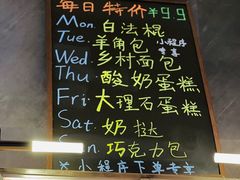 每日特价¥9.9
Mon. 白法棍
Tue. 羊角包 小程序专享
Wed. 乡村面包
Thu. 酸奶蛋糕
Fri. 大理石蛋糕
Sat. 奶挞
Sun. 巧克力包
小程序下单专享